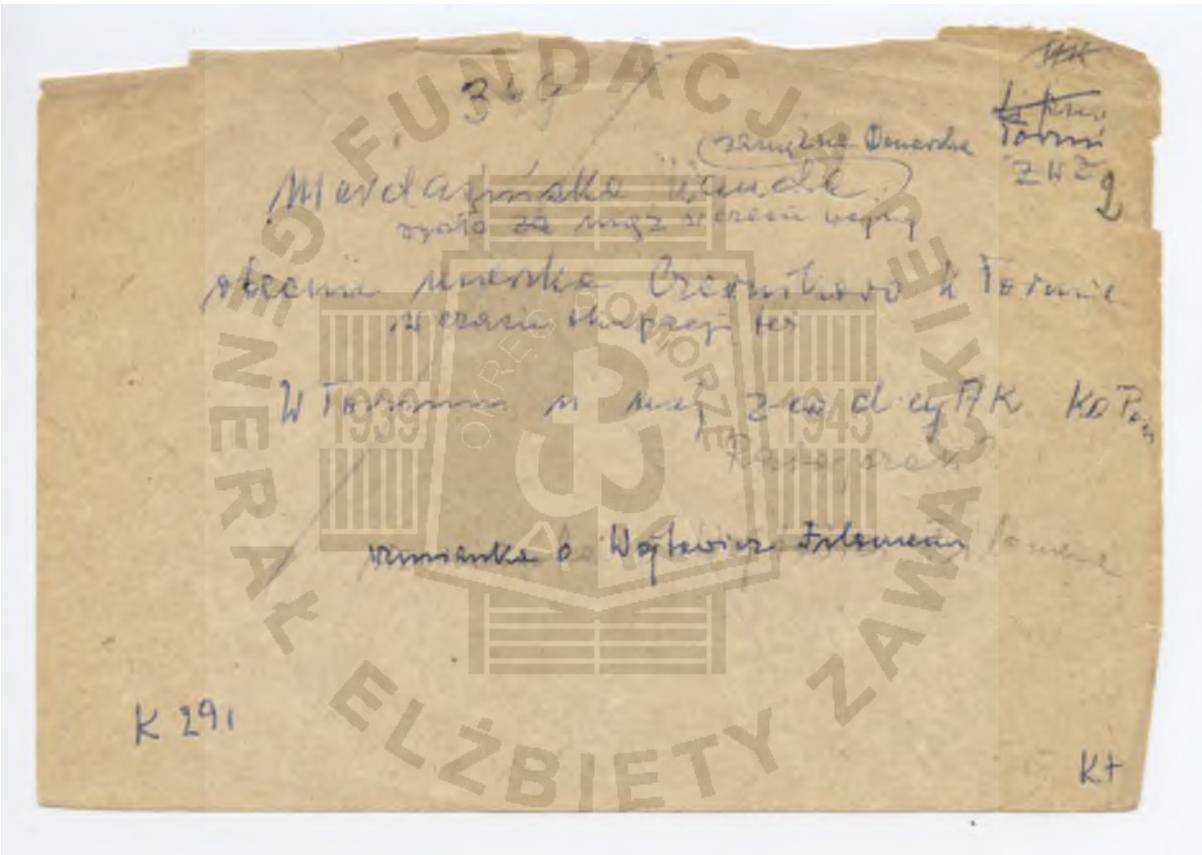 349
AK
Toruń
ZWZ
2
zamężna Domarska
Mardazińska Wanda
wyszła za mąż w czasie wojny
obecnie mieszka Czernikowo k Torunia
w czasie okupacji też
W Toruniu u niej z-ca d-cy AK
wzmianka o Wojtowicz Filomenie
K 291
K+
FUNDACJA GENERAŁ ELŻBIETY ZAWACKIEJ
OKRĘG POMORZE
1939
1945